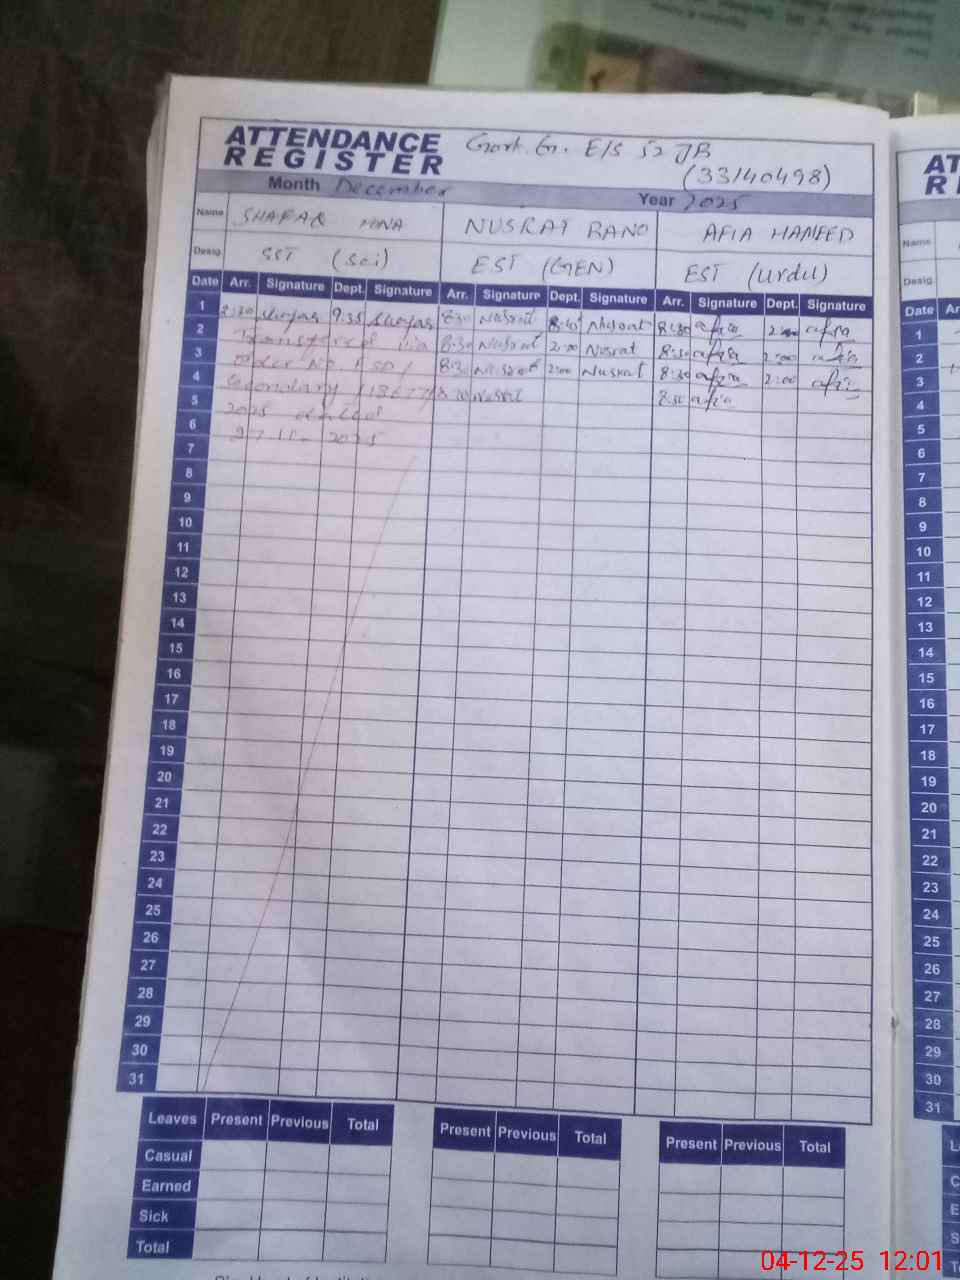 ATTENDANCE REGISTER
Govt. G. E/S 52 JB
(33140498)
Month December Year 2025
Name SHAFAQ HINA NUSRAT BANO AFIA HAMEED
Desig. SST (Sci) EST (GEN) EST (Urdu)
Date Arr. Signature Dept. Signature Arr. Signature Dept. Signature Arr. Signature Dept. Signature
1 8:30 9:35 8:30 Nusrat Nusrat 8:30 afia afia
2 Transferred via 8:30 Nusrat 2:00 Nusrat 8:30 afia 2:00 afia
3 Order No. 8:30 Nusrat 2:00 Nusrat 8:30 afia 2:00 afia
4 Secondary Nusrat 8:30 afia
5 2025 dated
6 27-11-2025
7
8
9
10
11
12
13
14
15
16
17
18
19
20
21
22
23
24
25
26
27
28
29
30
31
Leaves Present Previous Total Present Previous Total Present Previous Total
Casual
Earned
Sick
Total
Name
Desig.
Date
1
2
3
4
5
6
7
8
9
10
11
12
13
14
15
16
17
18
19
20
21
22
23
24
25
26
27
28
29
30
31
04-12-25 12:01